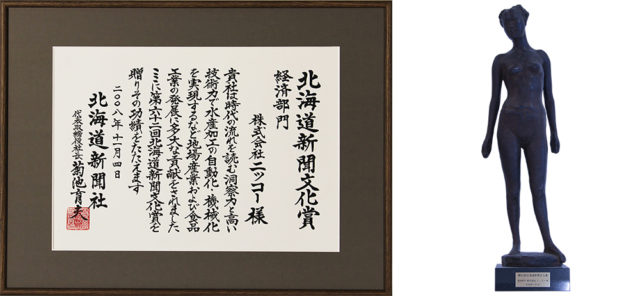 北海道新聞文化賞
経済部門
株式会社ニッコー様
貴社は時代の流れを読む洞察力と高い
技術力で水産加工の自動化・機械化
を実現するなど地場産業および食品
工業の発展に多大な貢献をされました
ここに第六十二回北海道新聞文化賞を
贈りその功績をたたえます
二〇〇八年十一月四日
北海道新聞社
代表取締役社長 菊池育夫